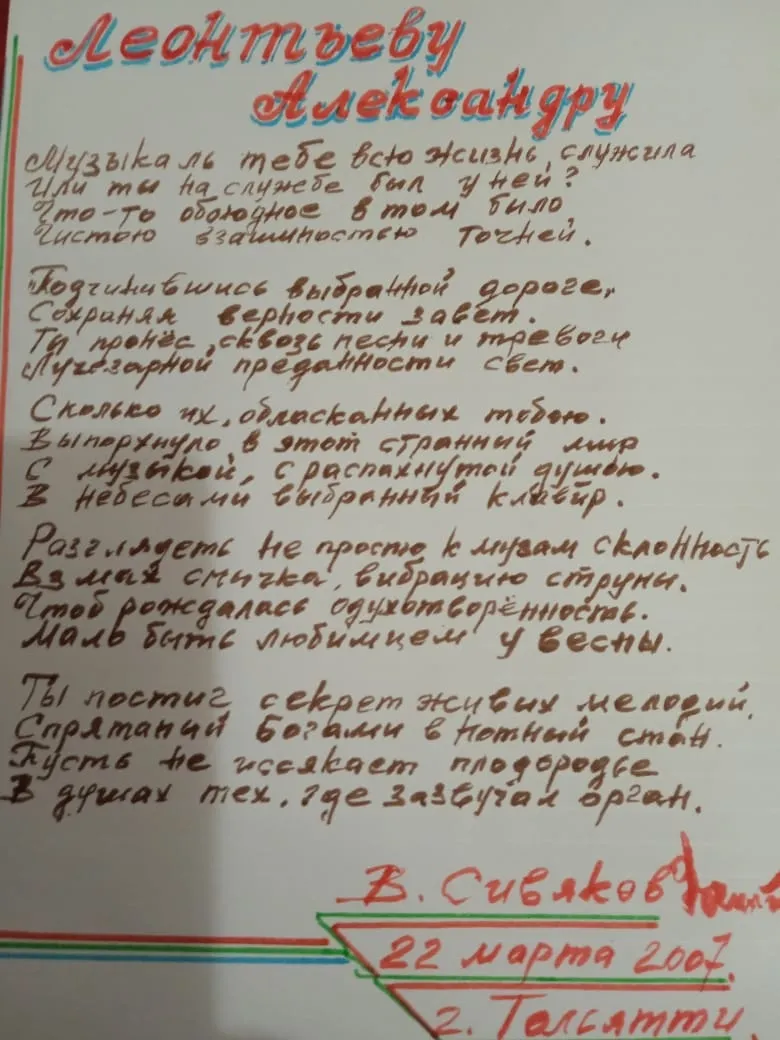 Леонтьеву
Александру
Музыка ль тебе всю жизнь служила
Или ты на службе был у ней?
Что-то обоюдное в том было,
Чистою взаимностью точней.
Подчинившись выбранной дороге,
Сохраняя верности завет.
Ты пронёс сквозь песни и тревоги
Лучезарной преданности свет.
Сколько их, обласканных тобою.
Выпорхнуло в этот странный мир
С музыкой, с распахнутой душою.
В небесами выбранный клавир.
Разглядеть не просто к музам склонность
Взмах смычка, вибрацию струны.
Чтоб рождалась одухотворённость.
Мало быть любимцем у весны.
Ты постиг секрет живых мелодий,
Спрятаный Богами в нотный стан.
Пусть не иссякает плодородье
В душах тех, где зазвучал орган.
В. Сивяков
22 марта 2007.
г. Тольятти.